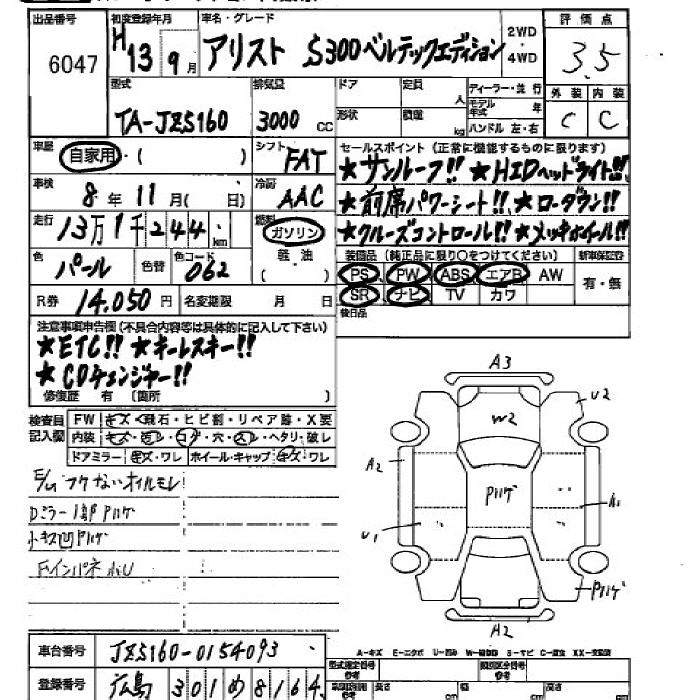 出品番号 初度登録年月 車名・グレード 2WD 評価点
6047 H13 9月 アリスト S300ベルテックエディション ・4WD 3.5
型式 排気量 ドア 定員 人 ディーラー・並行 外装 内装
TA-JZS160 3000cc 形状 積量 kg モデル年式 年 C C
ハンドル 左・右
車歴 自家用・( ) シフト FAT セールスポイント (正常に機能するものに限ります)
★サンルーフ!! ★HIDヘッドライト!!
車検 8年11月( 日) 冷房 AAC ★前席パワーシート!! ★ローダウン!!
走行 13万1千244km 燃料 ガソリン ★クルーズコントロール!! ★メッキホイール!!
軽油 ( ) 装備品 (純正品に限り○をつけてください) 新車保証書
色 パール 色替 色コード 062 PS PW ABS エアB AW 有・無
R券 14.050円 名変期限 月 日 SR ナビ TV カワ
後日品
注意事項申告欄 (不具合内容等は具体的に記入して下さい)
★ETC!! ★キーレスキー!!
★CDチェンジャー!!
修復歴 有 〔箇所 〕
検査員記入欄 FW キズ・飛石・ヒビ割・リペア跡・X要
内装 キズ・汚レ・コゲ・穴・スレ・ヘタリ・破レ
ドアミラー キズ・ワレ ホイール・キャップ キズ・ワレ
オイルモレ
Dミラー1部Pハゲ
小キズ凹Pハゲ
A3
U2
W2
A2
Pハゲ
A1
U1
Pハゲ
A2
車台番号 JZS160-0154093
A-キズ E-エクボ U-凹み W-補修跡 S-サビ C-腐食 XX-交換済
登録番号 広島 301 め 8164
型式指定番号 参考 類別区分番号 参考
長さ cm cm cm